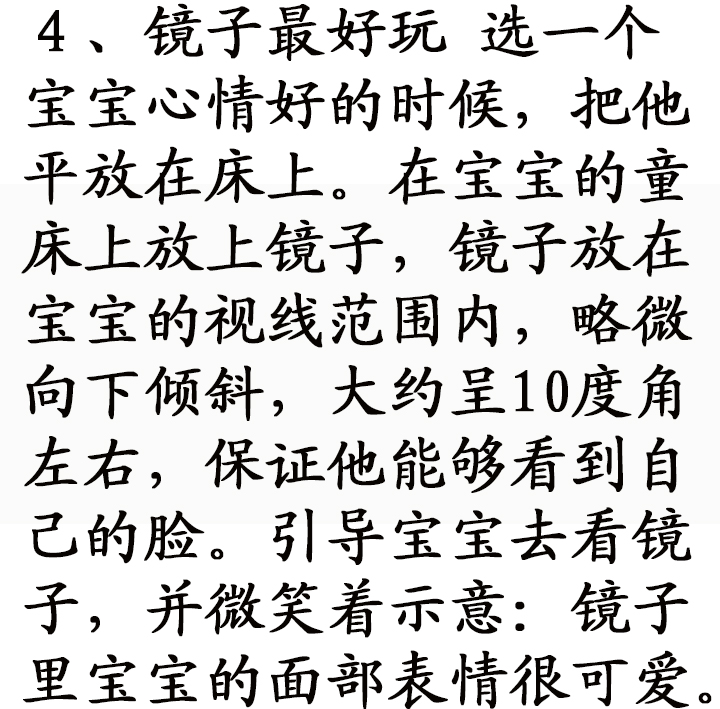 4、镜子最好玩 选一个
宝宝心情好的时候，把他
平放在床上。在宝宝的童
床上放上镜子，镜子放在
宝宝的视线范围内，略微
向下倾斜，大约呈10度角
左右，保证他能够看到自
己的脸。引导宝宝去看镜
子，并微笑着示意：镜子
里宝宝的面部表情很可爱。